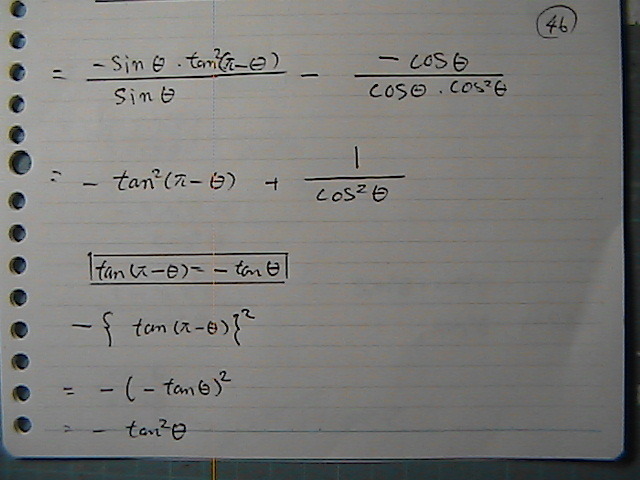 46
= -sin θ · tan²(π-θ) / sin θ - -cos θ / cos θ · cos²θ
= - tan²(π-θ) + 1 / cos²θ
tan(π-θ) = - tan θ
- { tan(π-θ)}²
= - (- tan θ)²
= - tan²θ